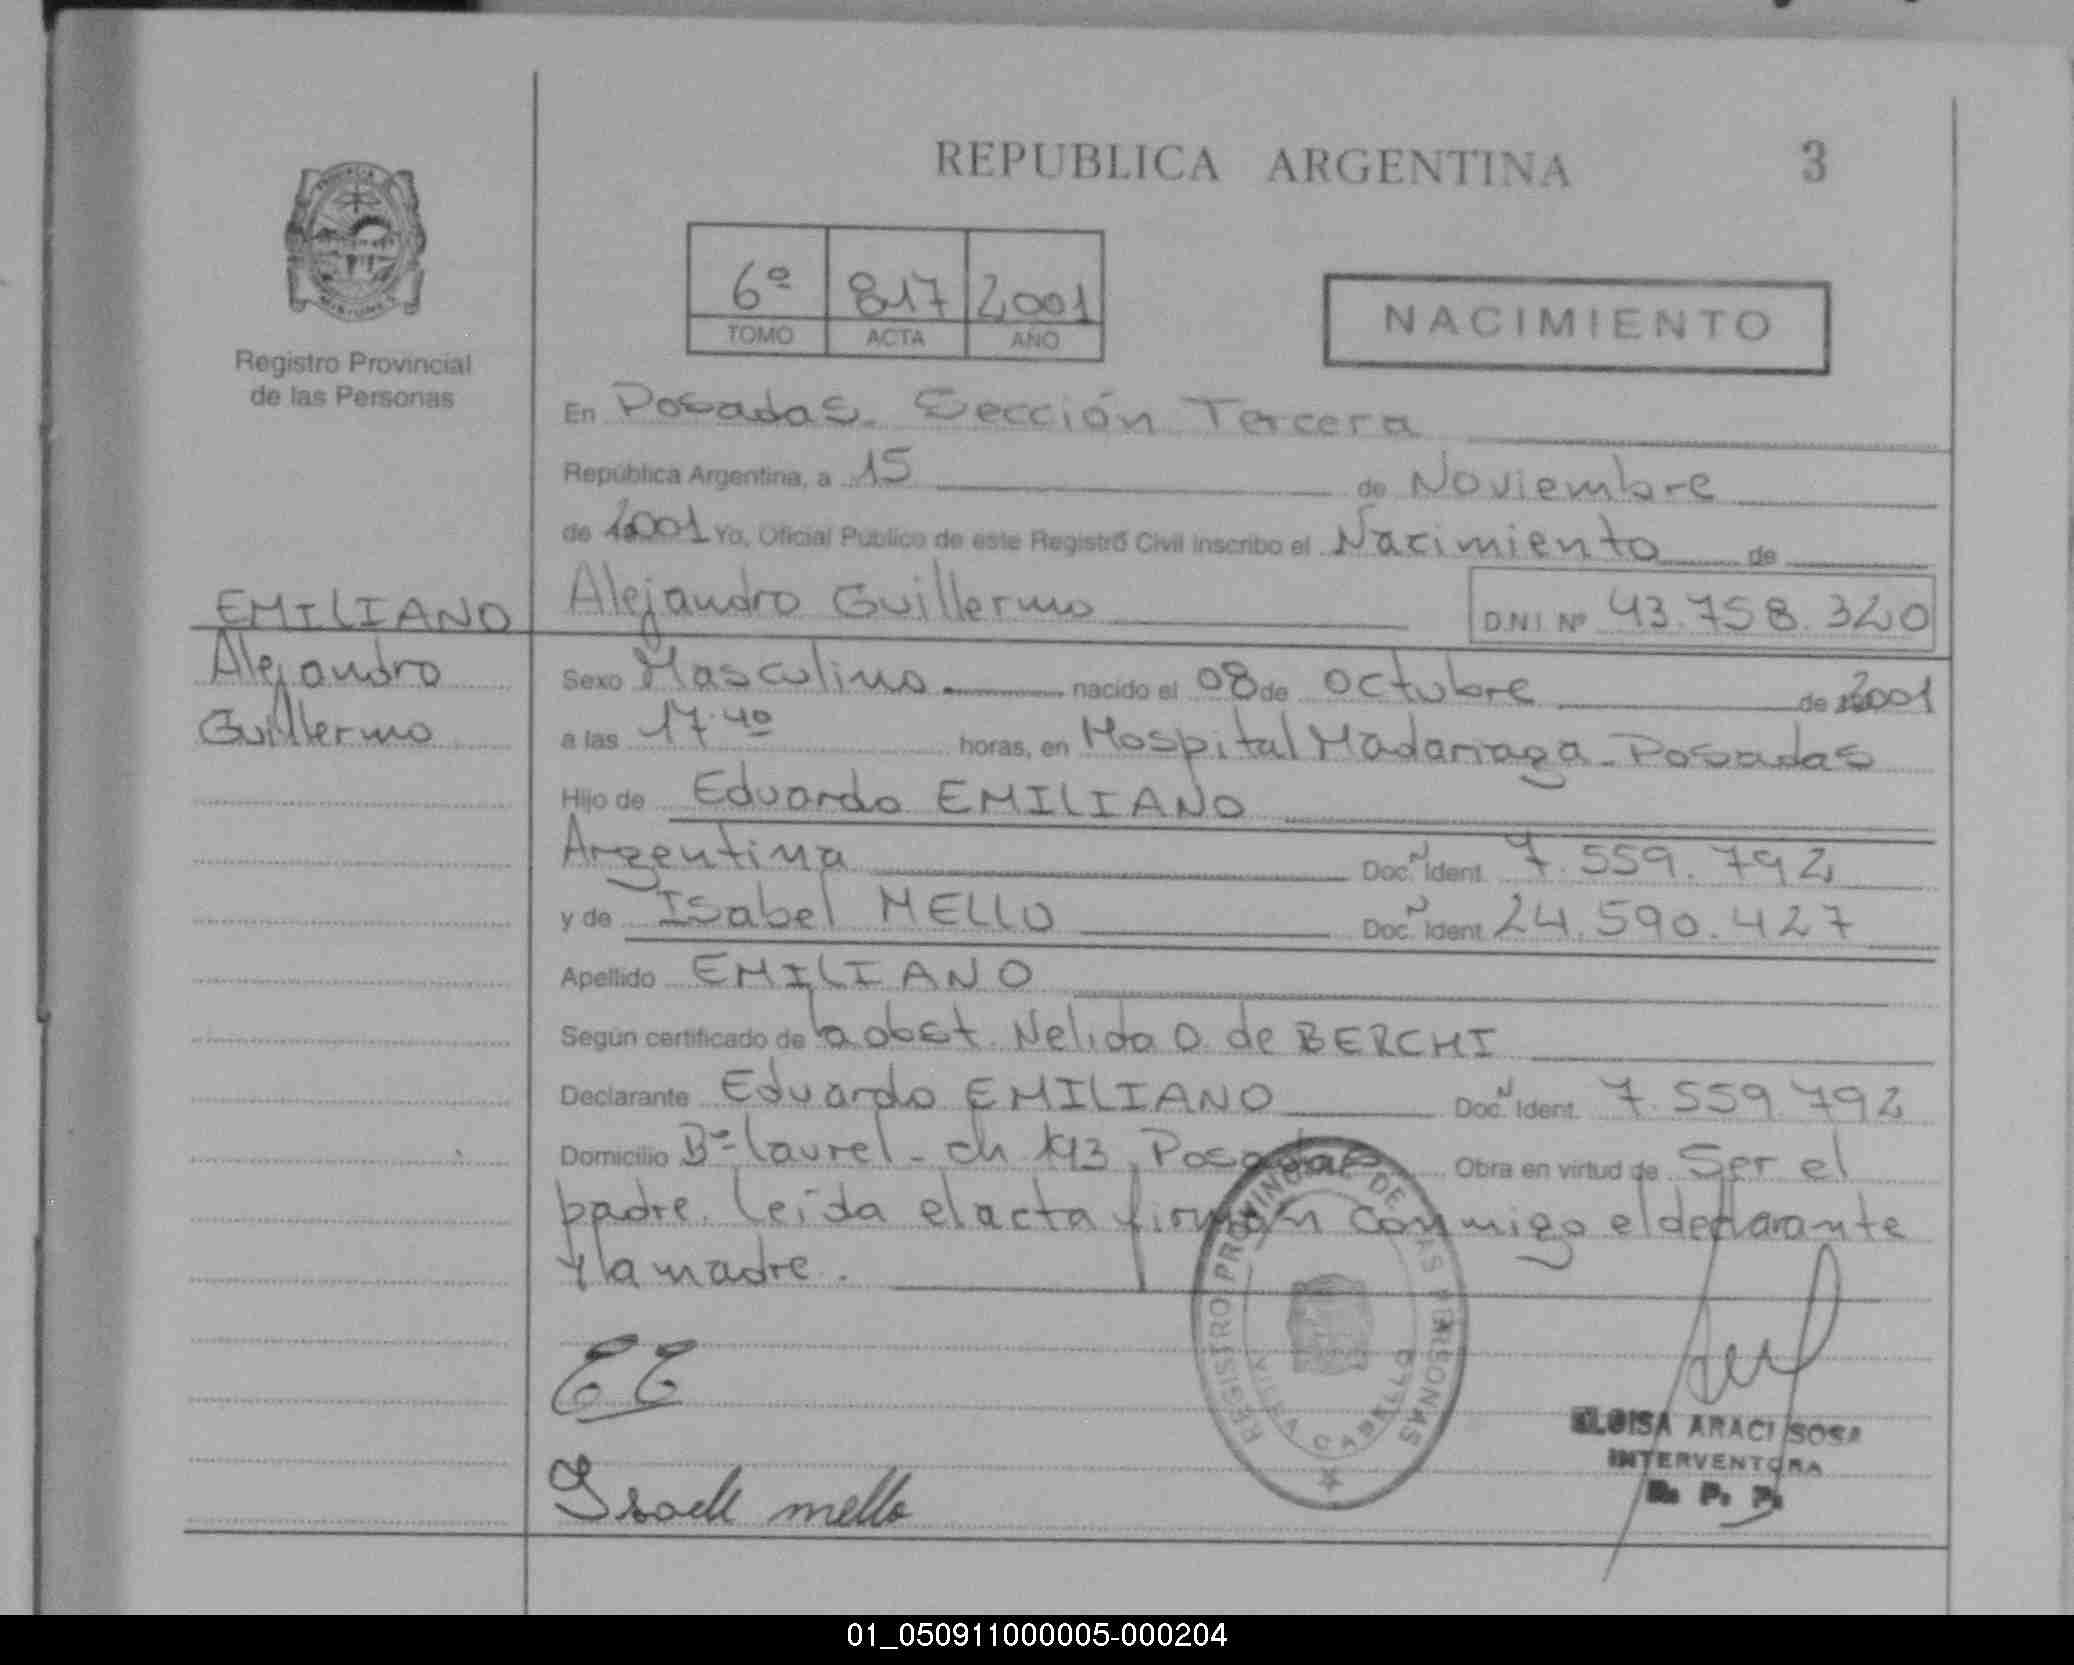 REPUBLICA ARGENTINA 3
6º 817 2001
TOMO ACTA AÑO
NACIMIENTO
Registro Provincial
de las Personas
En Posadas. Sección Tercera
República Argentina, a 15 de Noviembre
de 2001 Yo, Oficial Público de este Registro Civil inscribo el Nacimiento de
EMILIANO
Alejandro
Guillermo
Alejandro Guillermo D.N.I. Nº 43.758.320
Sexo Masculino nacido el 08 de octubre de 2001
a las 17.40 horas, en Hospital Madariaga - Posadas
Hijo de Eduardo EMILIANO
Argentina Doc. N Ident. 7.559.792
y de Isabel MELLO Doc. N Ident. 24.590.427
Apellido EMILIANO
Según certificado de la obst. Nelida O. de BERCHI
Declarante Eduardo EMILIANO Doc. N Ident. 7.559.792
Domicilio Bº laurel - ch 193, Posadas Obra en virtud de Ser el
padre. leída el acta firman conmigo el declarante
y la madre.
EE
Isabel mello
REGISTRO PROVINCIAL DE LAS PERSONAS
VILLA CABELLO
ELOISA ARACI SOSA
INTERVENTORA
R. P. P.
01_050911000005-000204